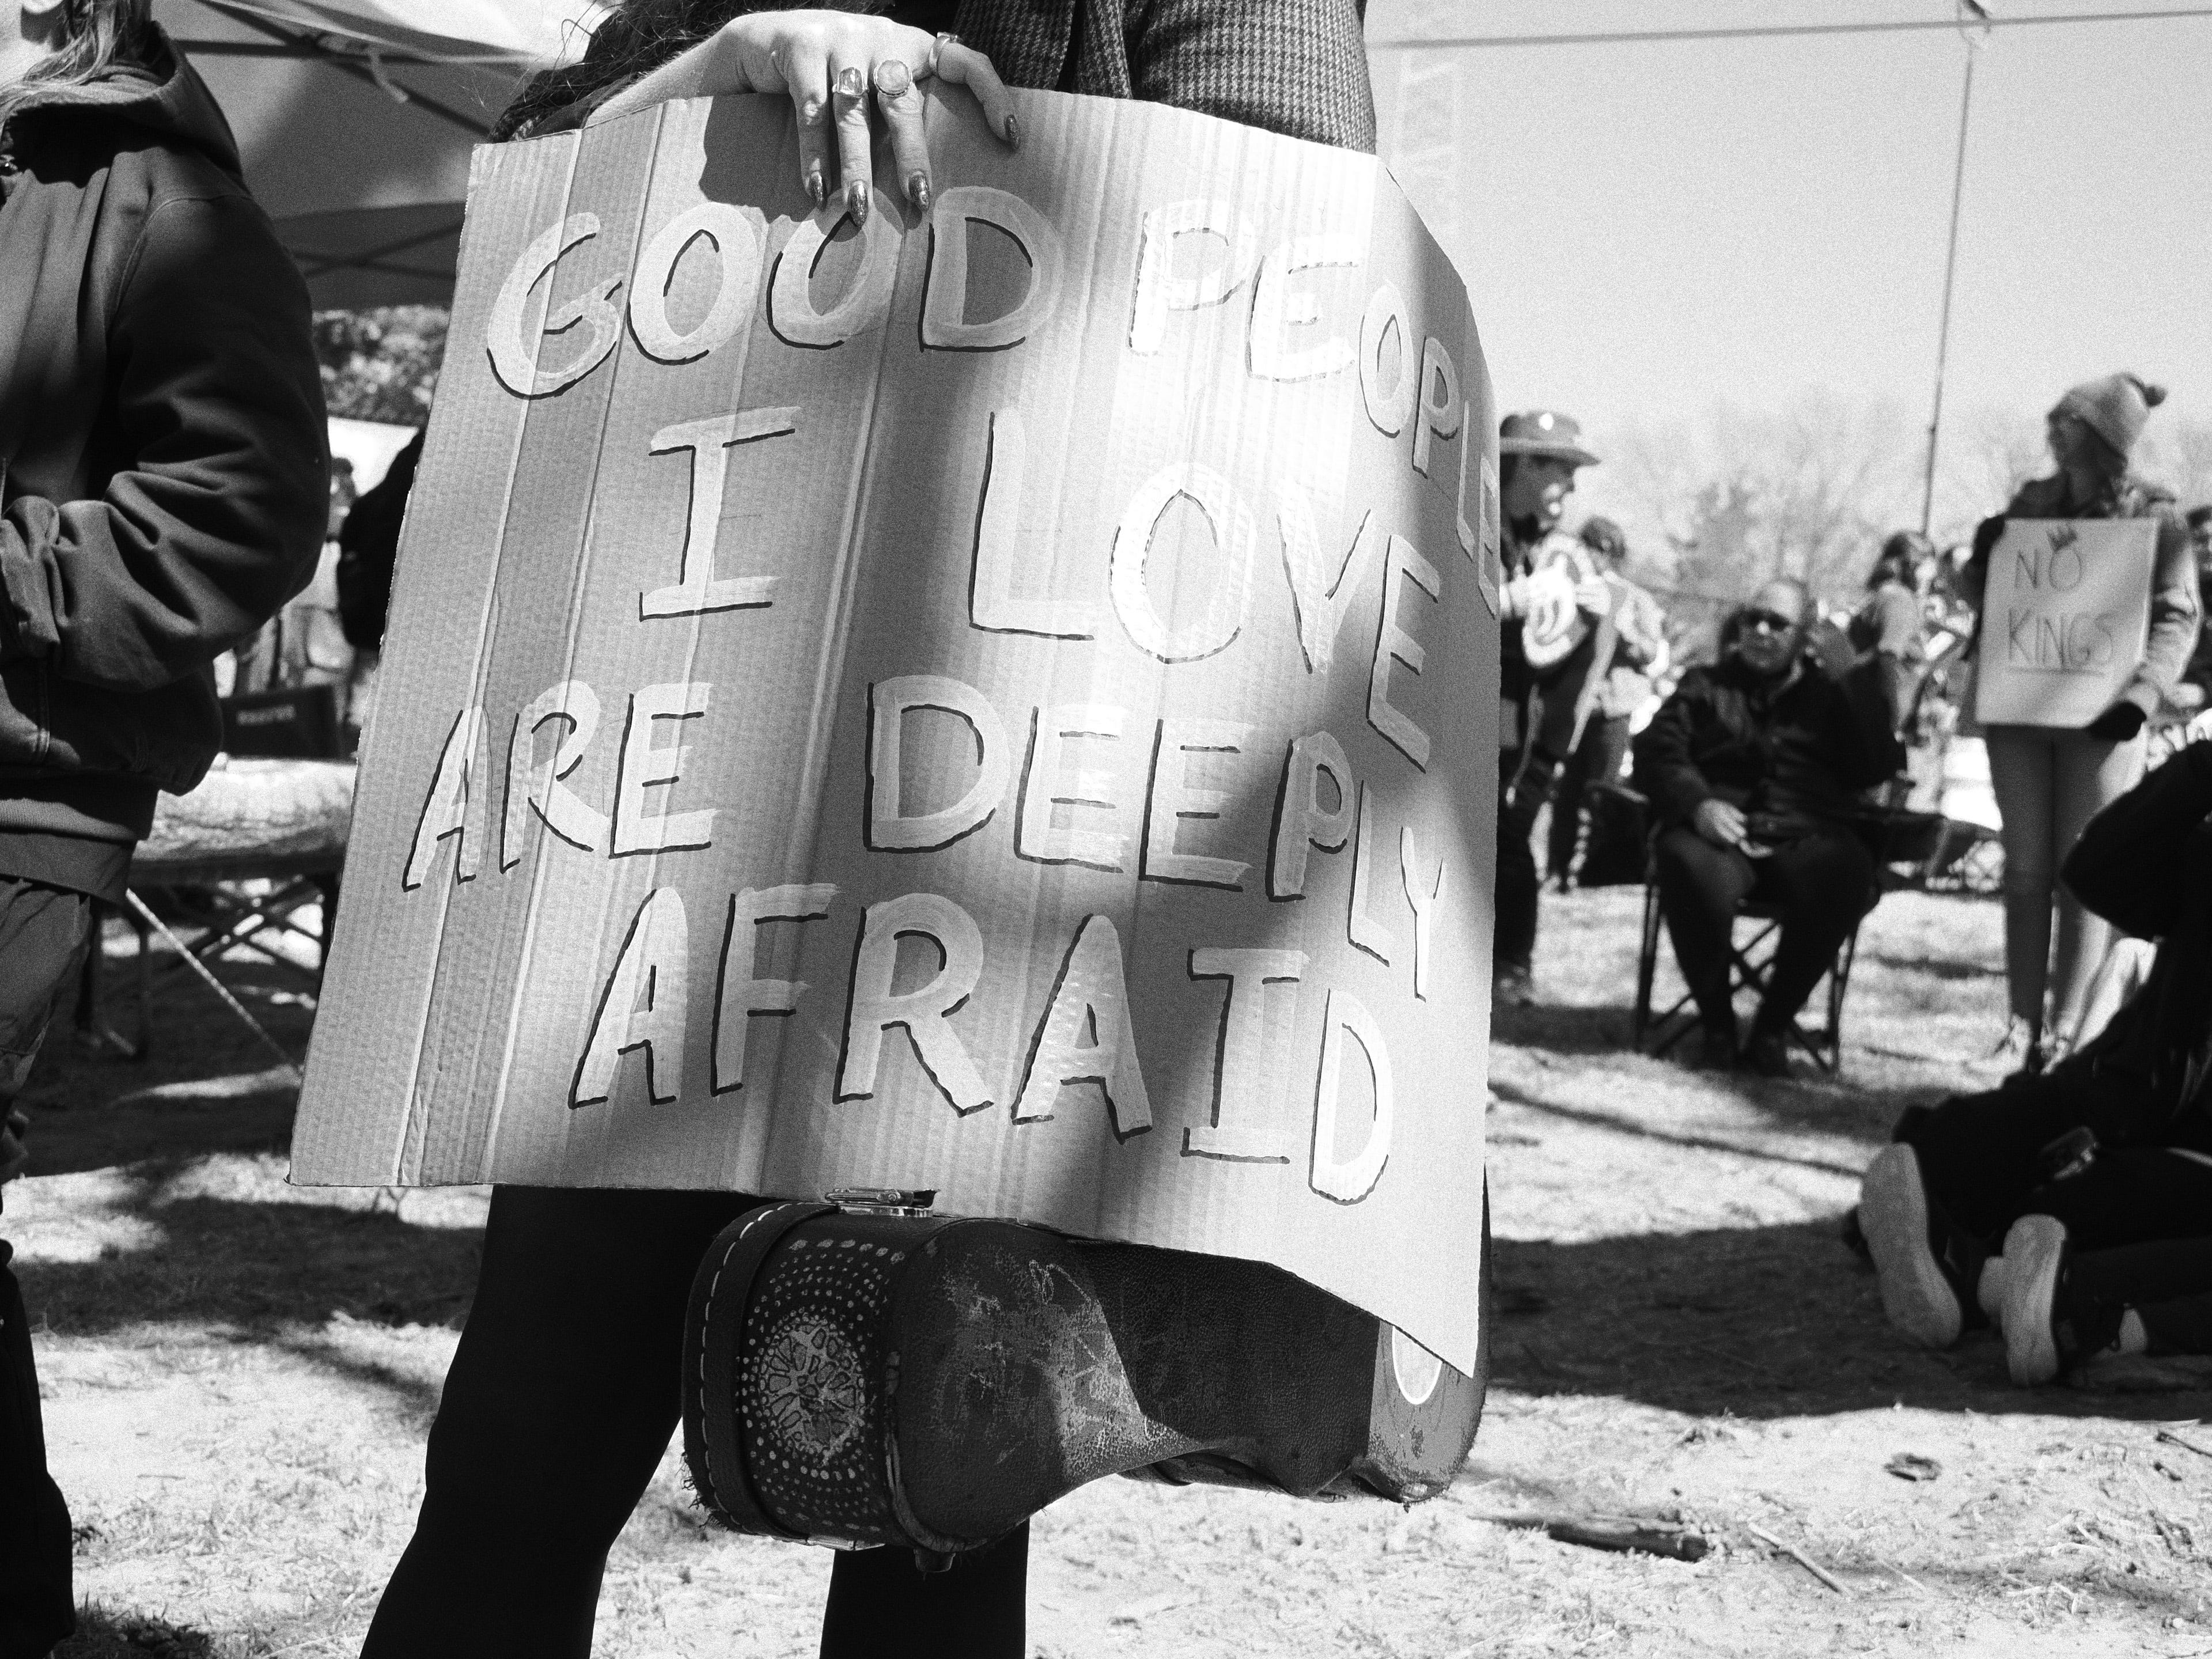 GOOD PEOPLE
I LOVE
ARE DEEPLY
AFRAID
NO
KINGS